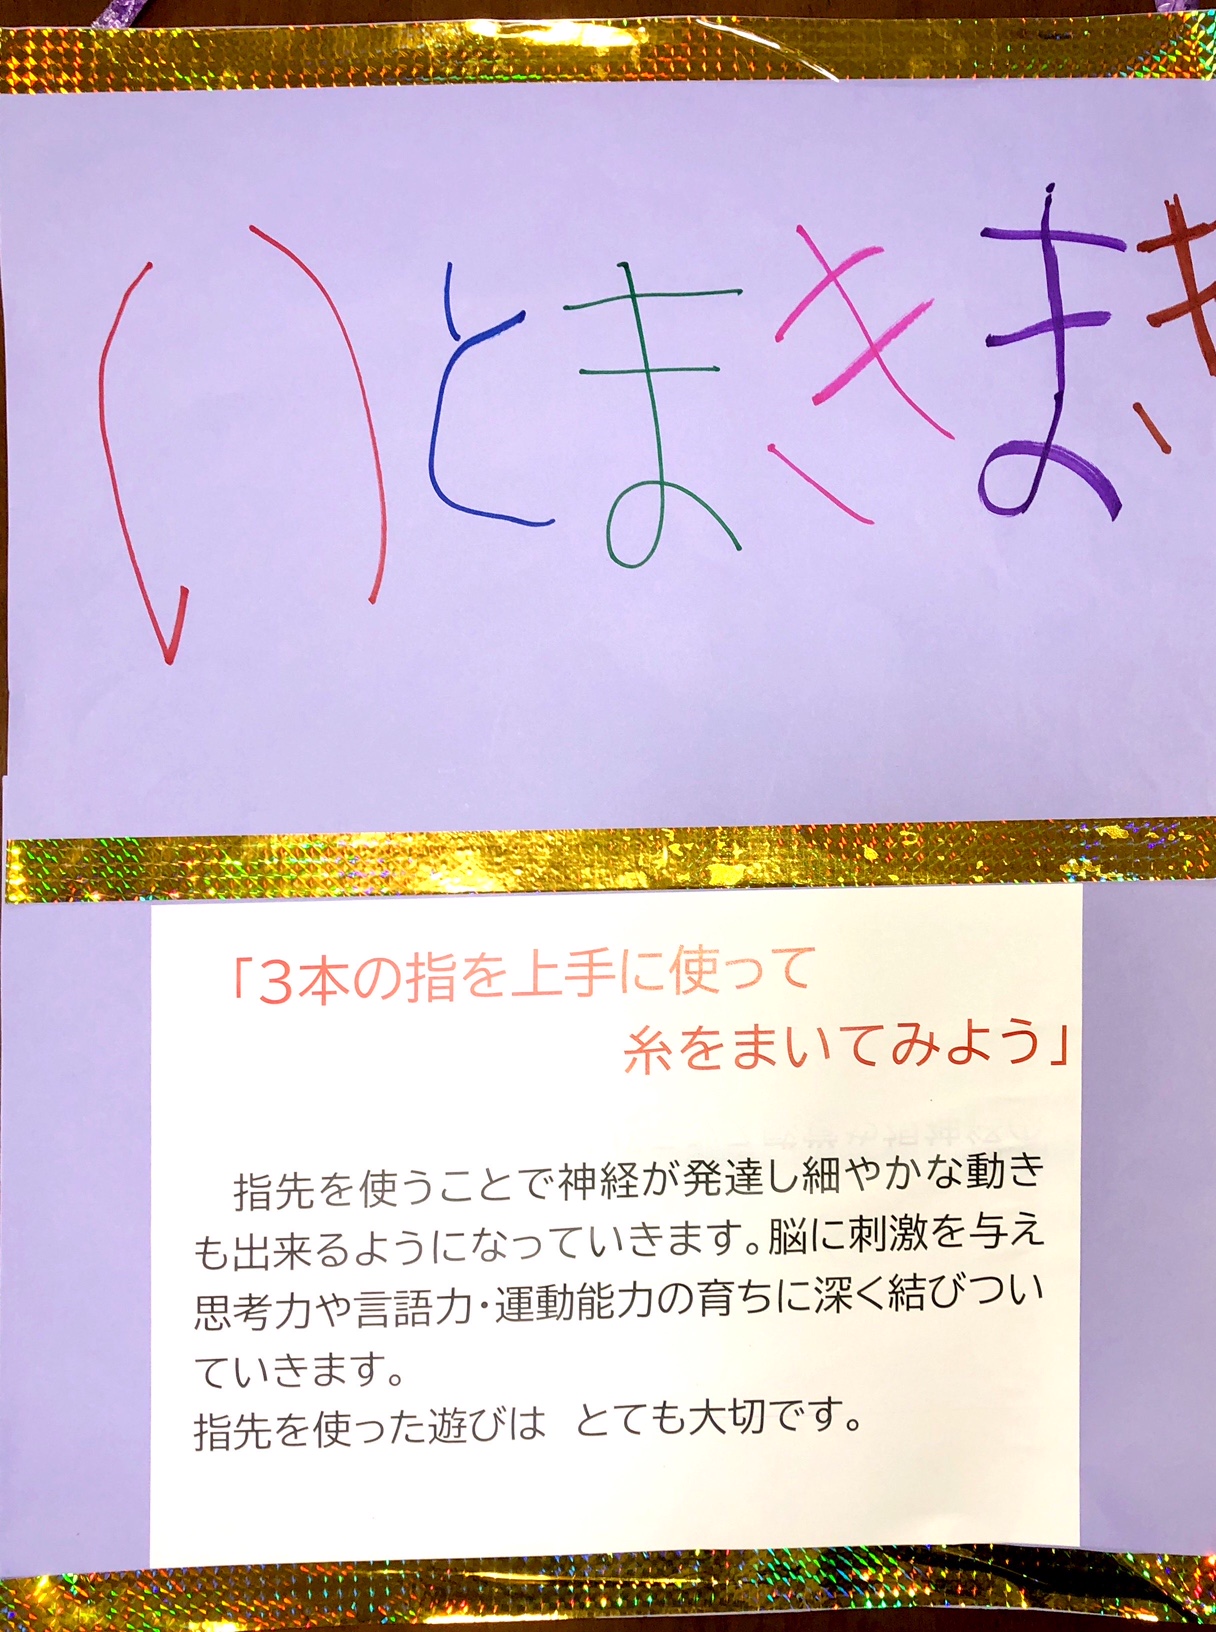 いとまきまき
「3本の指を上手に使って
糸をまいてみよう」
指先を使うことで神経が発達し細やかな動き
も出来るようになっていきます。脳に刺激を与え
思考力や言語力・運動能力の育ちに深く結びつい
ていきます。
指先を使った遊びは　とても大切です。